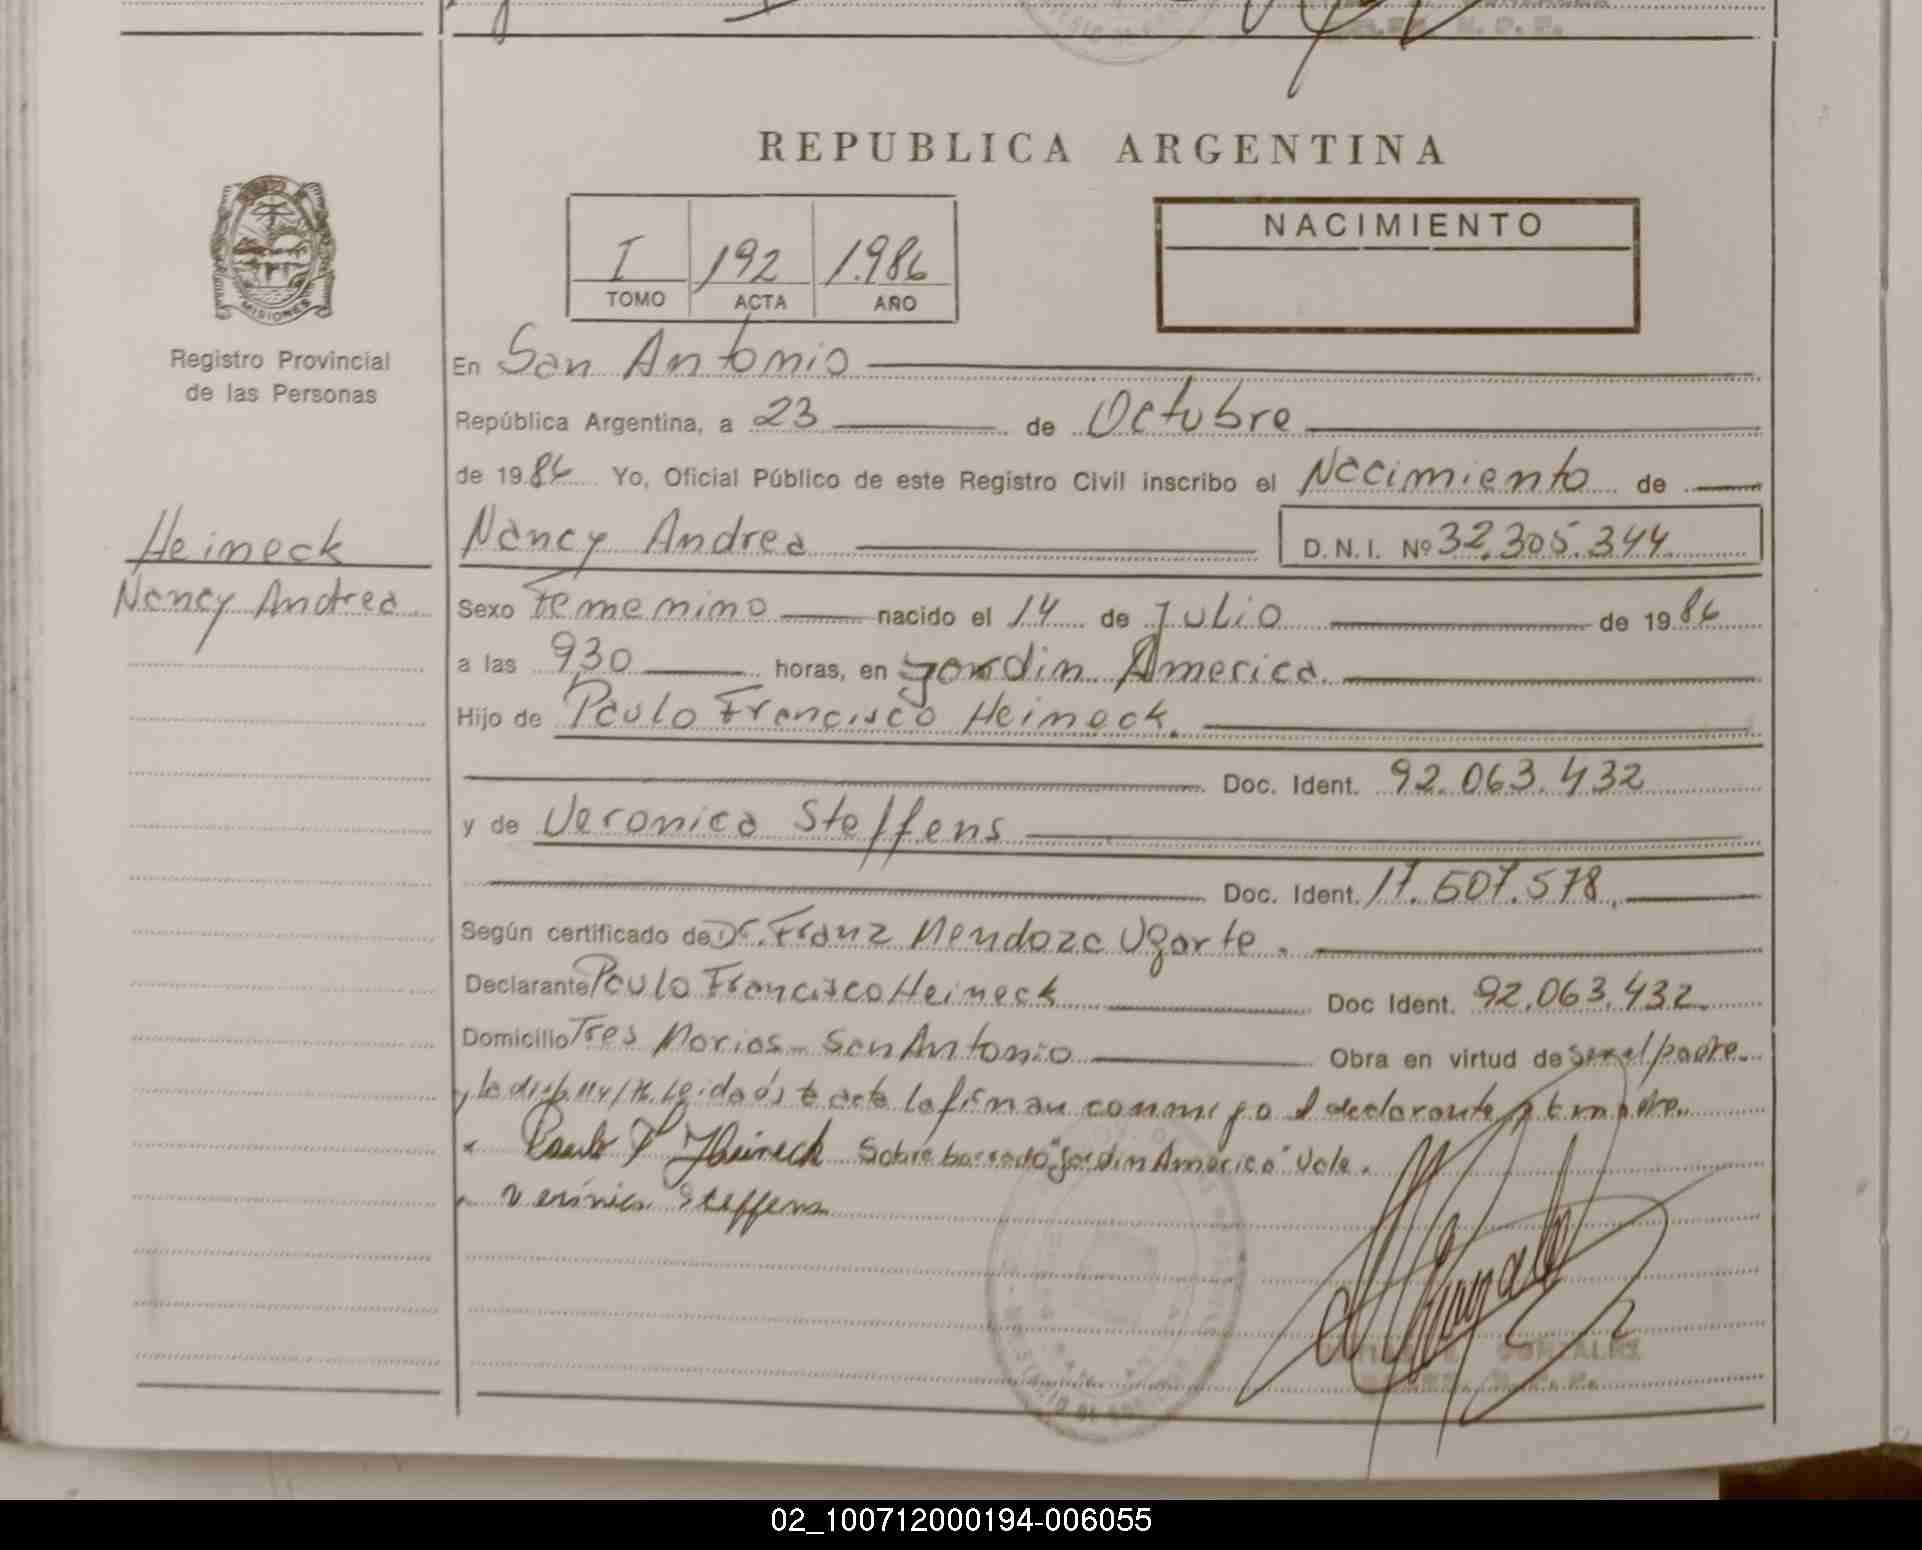 REPUBLICA ARGENTINA
NACIMIENTO
I 192 1.986
TOMO ACTA AÑO
MISIONES
Registro Provincial
de las Personas
Heineck
Nancy Andrea
En San Antonio
República Argentina, a 23 de Octubre
de 1986 Yo, Oficial Público de este Registro Civil inscribo el Nacimiento de
Nancy Andrea D.N.I. Nº 32.305.344
Sexo Femenino nacido el 14 de Julio de 1986
a las 930 horas, en Jardin America.
Hijo de Paulo Francisco Heineck.
Doc. Ident. 92.063.432
y de Veronica Steffens
Doc. Ident. 17.607.578.
Según certificado de Dr. Franz Mendoza Ugarte.
Declarante Paulo Francisco Heineck Doc Ident. 92.063.432.
Domicilio Tres Marias - San Antonio Obra en virtud de ser el padre.
y la disp. 114/76. Leida ésta acta la firman conmigo el declarante y la madre.
Paulo F Heineck Sobre borrado "Jardin America" Vale.
Verónica Steffens
GONZALEZ
02_100712000194-006055